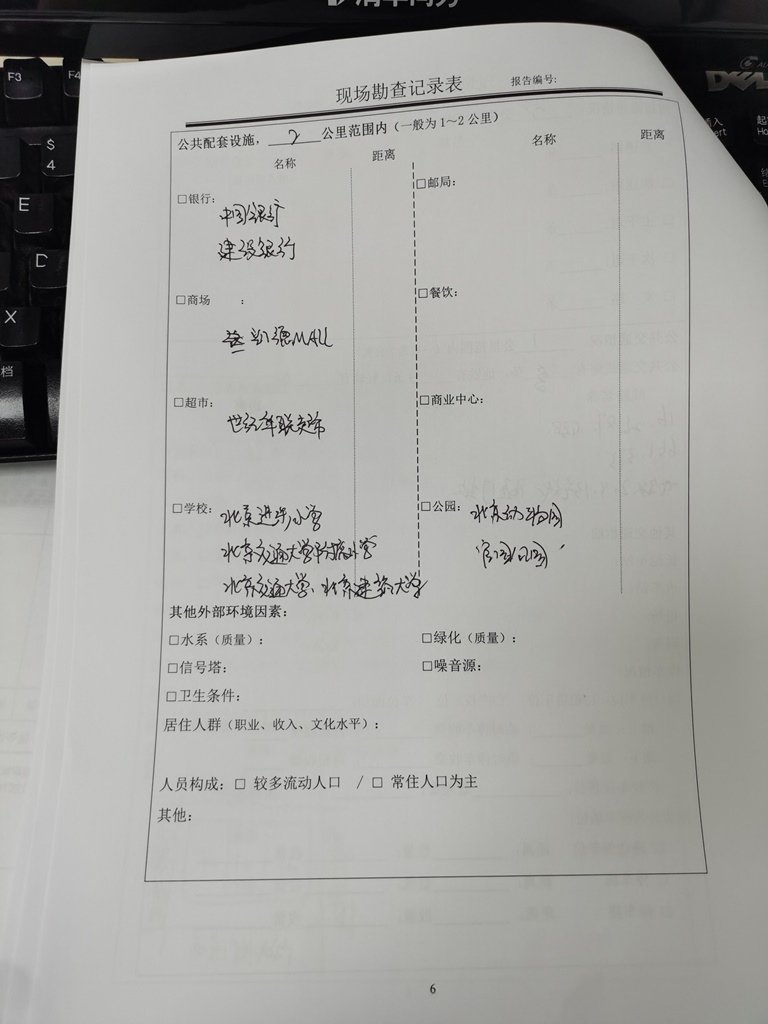 清华同方
F3
F4
$
4
E
D
X
档
DELL
现场勘查记录表
报告编号:
公共配套设施，2公里范围内（一般为1～2公里）
名称 距离 名称 距离
□银行: □邮局:
中国银行
建设银行
□商场 : □餐饮:
凯德MALL
□超市: □商业中心:
世纪华联超市
□学校: □公园:
北京进步小学 北京动物园
北京交通大学附属小学 官园公园
北京交通大学、北京建筑大学
其他外部环境因素:
□水系（质量）: □绿化（质量）:
□信号塔: □噪音源:
□卫生条件:
居住人群（职业、收入、文化水平）:
人员构成: □ 较多流动人口 / □ 常住人口为主
其他:
6